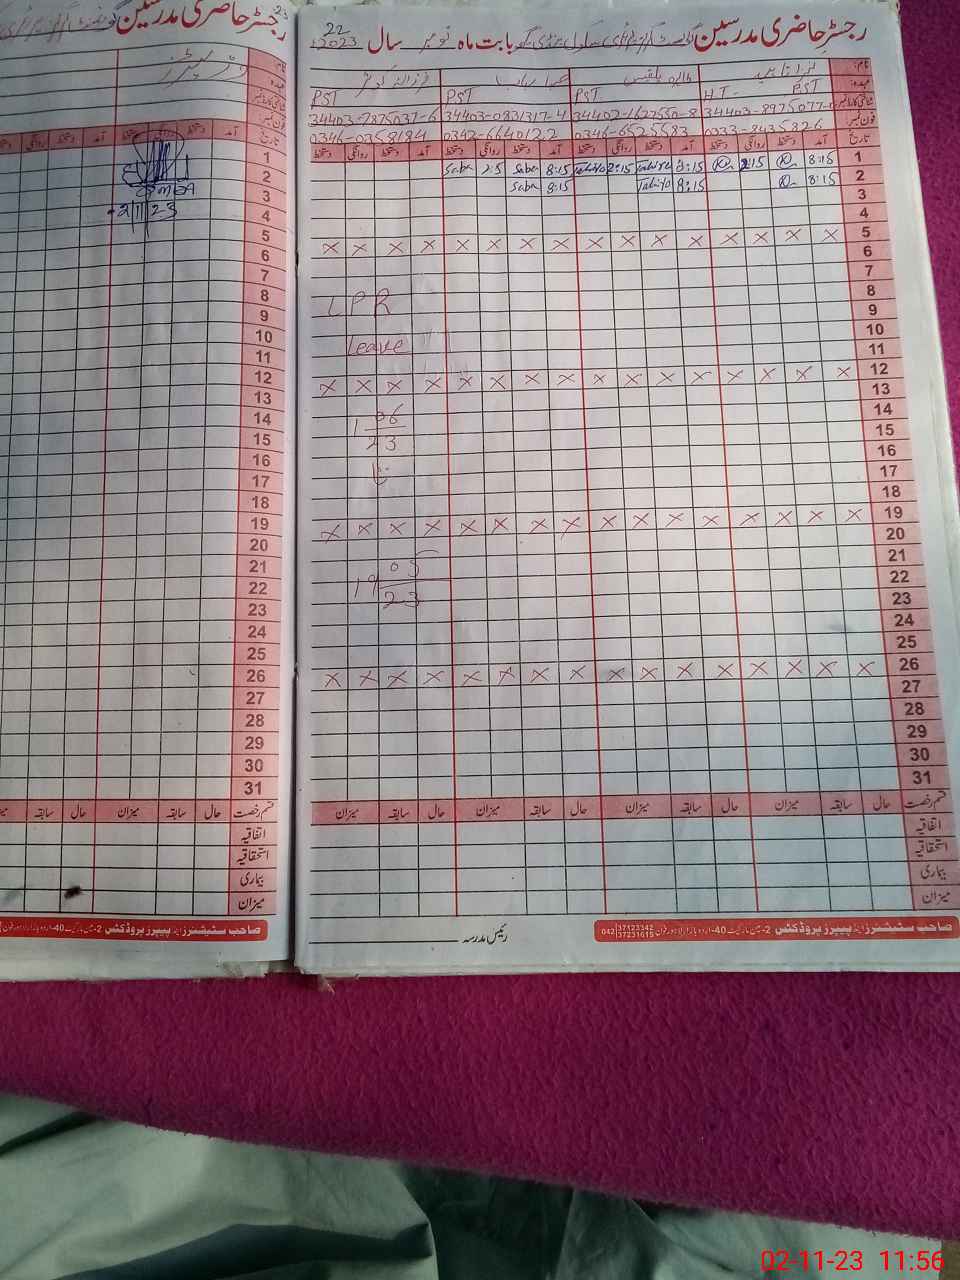 رجسٹر حاضری مدرسین
نام:
عہدہ:
شناختی کارڈ نمبر
فون نمبر:
تاریخ آمد دستخط روانگی دستخط آمد دستخط روانگی
1
2
3
4
5
6
7
8
9
10
11
12
13
14
15
16
17
18
19
20
21
22
23
24
25
26
27
28
29
30
31
2 11 23
قسم رخصت حال سابقہ میزان حال سابقہ
اتفاقیہ
استحقاقیہ
بیماری
میزان
صاحب سٹیشنرز اینڈ پیپرز پروڈکٹس 2-مین مارکیٹ 40-اردو بازار لاہور فون
رجسٹر حاضری مدرسین بابت ماہ نومبر سال 2023
22
نام:
عہدہ: PST H.T- PST PST PST
شناختی کارڈ نمبر 34403-8975077-0 34402-1627550-8 34403-0831317-4 34403-7875037-6
فون نمبر: 0333-8435826 0346-6525583 0342-6640122 0346-0358184
تاریخ آمد دستخط روانگی دستخط آمد دستخط روانگی دستخط آمد دستخط روانگی دستخط آمد دستخط روانگی دستخط
1 8:15 2:15 8:15 Tahira 2:15 Tahira 8:15 Saba 2:5 Saba
2 8:15 8:15 Tahira 8:15 Saba
3
4
5 × × × × × × × × × × × × × × × ×
6
7
8
9 LPR
10
11 Leave
12 × × × × × × × × × × × × × × × ×
13
14 1 06
15 23
16
17
18
19 × × × × × × × × × × × × × × × ×
20
21 05
22 19
23 23
24
25
26 × × × × × × × × × × × × × × × ×
27
28
29
30
31
قسم رخصت حال سابقہ میزان حال سابقہ میزان حال سابقہ میزان حال سابقہ میزان
اتفاقیہ
استحقاقیہ
بیماری
میزان
صاحب سٹیشنرز اینڈ پیپرز پروڈکٹس 2-مین مارکیٹ 40-اردو بازار لاہور فون 042 37123342 37231615
رئیس مدرسہ
02-11-23 11:56